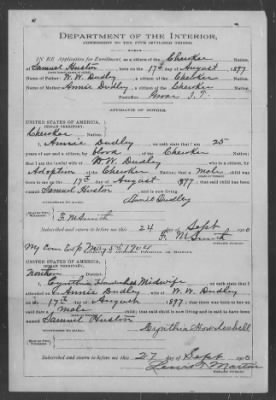 DEPARTMENT OF THE INTERIOR,
COMMISSION TO THE FIVE CIVILIZED TRIBES.
IN RE Application for Enrollment, as a citizen of the Cherokee Nation,
of Samuel Huston, born on the 17th day of August, 1897
Name of Father: W. W. Dudley, a citizen of the Cherokee Nation.
Name of Mother: Annie Dudley, a citizen of the Cherokee Nation.
I. T.
AFFIDAVIT OF MOTHER.
UNITED STATES OF AMERICA,
INDIAN TERRITORY,
Cherokee Nation.
I, Annie Dudley, on oath state that I am 25
years of age and a citizen by blood, of the Cherokee Nation;
that I am the lawful wife of W. W. Dudley, who is a citizen, by
Adoption of the Cherokee Nation; that a male child
was born to me on 17th day of August, 1897; that said child has been
named Samuel Huston, and is now living.
Annie Dudley
F. M. Smith
Subscribed and sworn to before me this 24 day of Sept
F. M. Smith
My Com Exp
UNITED STATES OF AMERICA,
INDIAN TERRITORY,
Northern District.
I, Cynthia, a Midwife, on oath state that I
attended on Annie Dudley, wife of W. W. Dudley
on the 17th day of August, 1897; that there was born to her on said
date a male child; that said child is now living and is said to have been
named Samuel Huston
Cynthia
Subscribed and sworn to before me this 27 day of Sept